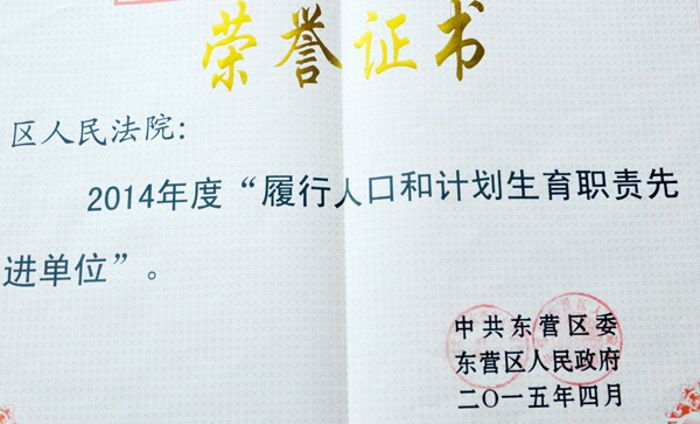 荣誉证书
区人民法院:
2014年度“履行人口和计划生育职责先
进单位”。
中共东营区委
东营区人民政府
二〇一五年四月